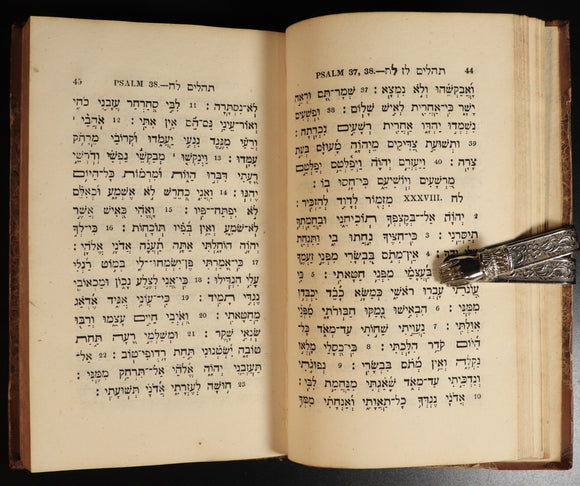 PSALM 37, 38.—תהלים לז לח 44
וָאֲבַקְשֵׁהוּ וְלֹא נִמְצָא : 37 שְׁמָר־תָּם וּרְאֵה
יָשָׁר כִּי־אַחֲרִית לְאִישׁ שָׁלוֹם : 38 וּפֹשְׁעִים
נִשְׁמְדוּ יַחְדָּו אַחֲרִית רְשָׁעִים נִכְרָתָה :
39 וּתְשׁוּעַת צַדִּיקִים מֵיְהוָה מָעוּזָּם בְּעֵת
צָרָה : 40 וַיַּעְזְרֵם יְהוָה וַיְפַלְּטֵם יְפַלְּטֵם
מֵרְשָׁעִים וְיוֹשִׁיעֵם כִּי־חָסוּ בוֹ :
לח XXXVIII. מִזְמוֹר לְדָוִד לְהַזְכִּיר :
2 יְהוָה אַל־בְּקֶצְפְּךָ תוֹכִיחֵנִי וּבַחֲמָתְךָ
תְיַסְּרֵנִי : 3 כִּי־חִצֶּיךָ נִחֲתוּ בִי וַתִּנְחַת
4 אֵין־מְתֹם בִּבְשָׂרִי מִפְּנֵי זַעְמֶךָ
בַּעֲצָמַי מִפְּנֵי חַטָּאתִי : 5 כִּי
עֲוֺנֹתַי עָבְרוּ רֹאשִׁי כְּמַשָּׂא כָבֵד יִכְבְּדוּ
מִמֶּנִּי : 6 הִבְאִישׁוּ נָמַקּוּ חַבּוּרֹתָי מִפְּנֵי
אִוַּלְתִּי : 7 נַעֲוֵיתִי שַׁחֹתִי עַד־מְאֹד כָּל־
הַיּוֹם קֹדֵר הִלָּכְתִּי : 8 כִּי־כְסָלַי מָלְאוּ
נִקְלֶה וְאֵין מְתֹם בִּבְשָׂרִי : 9 נְפוּגֹתִי
וְנִדְכֵּיתִי עַד־מְאֹד שָׁאַגְתִּי מִנַּהֲמַת לִבִּי :
10 אֲדֹנָי נֶגְדְּךָ כָל־תַּאֲוָתִי וְאַנְחָתִי מִמְּךָ
45 PSALM 38.—תהלים לח
לֹא־נִסְתָּרָה : 11 לִבִּי סְחַרְחַר עֲזָבַנִי כֹחִי
וְאוֹר־עֵינַי גַּם־הֵם אֵין אִתִּי : 12 אֹהֲבַי
וְרֵעַי מִנֶּגֶד נִגְעִי יַעֲמֹדוּ וּקְרוֹבַי מֵרָחֹק
עָמָדוּ : 13 וַיְנַקְשׁוּ מְבַקְשֵׁי נַפְשִׁי וְדֹרְשֵׁי
רָעָתִי דִּבְּרוּ הַוּוֹת וּמִרְמוֹת כָּל־הַיּוֹם
יֶהְגּוּ : 14 וַאֲנִי כְחֵרֵשׁ לֹא אֶשְׁמָע וּכְאִלֵּם
לֹא יִפְתַּח־פִּיו : 15 וָאֱהִי כְּאִישׁ אֲשֶׁר
לֹא־שֹׁמֵעַ וְאֵין בְּפִיו תּוֹכָחוֹת : 16 כִּי־לְךָ
יְהוָה הוֹחָלְתִּי אַתָּה תַעֲנֶה אֲדֹנָי אֱלֹהָי :
17 כִּי־אָמַרְתִּי פֶּן־יִשְׂמְחוּ־לִי בְּמוֹט רַגְלִי
עָלַי הִגְדִּילוּ : 18 כִּי־אֲנִי לְצֶלַע נָכוֹן וּמַכְאוֹבִי
נֶגְדִּי תָמִיד : 19 כִּי־עֲוֺנִי אַגִּיד אֶדְאַג
מֵחַטָּאתִי : 20 וְאֹיְבַי חַיִּים עָצֵמוּ וְרַבּוּ
שֹׂנְאַי שָׁקֶר : 21 וּמְשַׁלְּמֵי רָעָה תַּחַת
טוֹבָה יִשְׂטְנוּנִי תַּחַת רָדְופִי־טוֹב : 22 אַל־
תַּעַזְבֵנִי יְהוָה אֱלֹהַי אַל־תִּרְחַק מִמֶּנִּי :
23 חוּשָׁה לְעֶזְרָתִי אֲדֹנָי תְּשׁוּעָתִי :